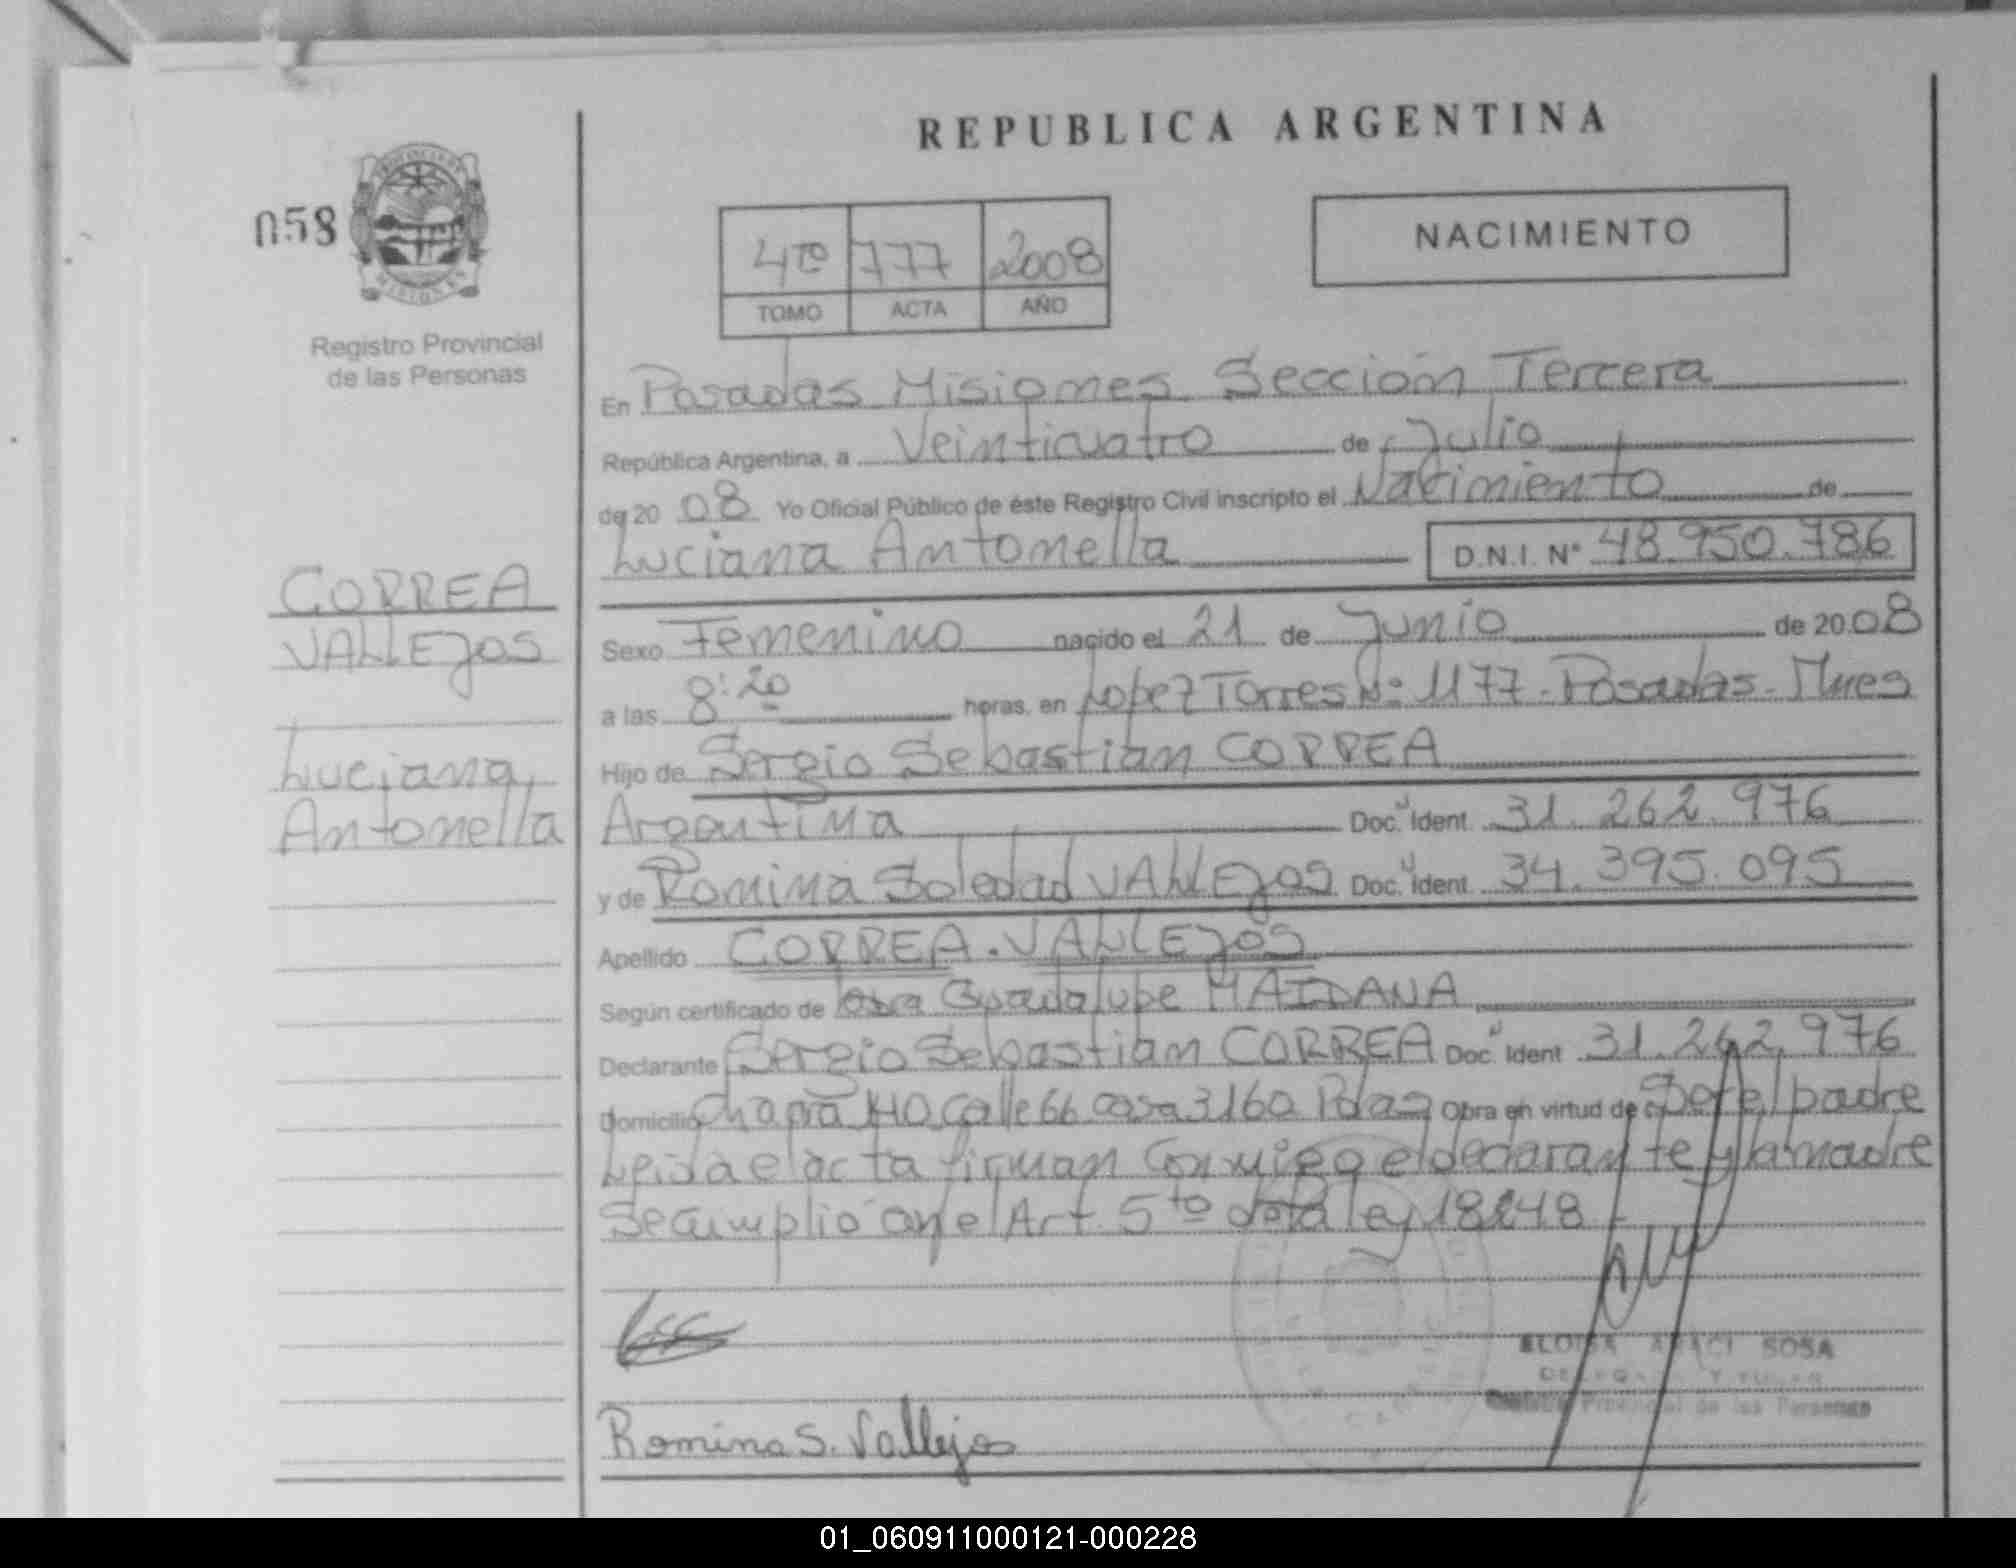 REPUBLICA ARGENTINA
058
PROVINCIA DE
MISIONES
Registro Provincial
de las Personas
4to 777 2008
TOMO ACTA AÑO
NACIMIENTO
En Posadas Misiones Sección Tercera
República Argentina, a Veinticuatro de Julio
de 20 08 Yo Oficial Público de éste Registro Civil inscripto el Nacimiento de
Luciana Antonella D.N.I. N° 48.950.786
CORREA
VALLEJOS
Luciana
Antonella
Sexo Femenino nacido el 21 de Junio de 20 08
a las 8:20 horas, en Lopez Torres N° 1177 - Posadas - Mnes
Hijo de Sergio Sebastian CORREA
Argentina Doc. Ident. 31.262.976
y de Romina Soledad VALLEJOS Doc. Ident. 34.395.095
Apellido CORREA. VALLEJOS
Según certificado de Obra Guadalupe MAIDANA
Declarante Sergio Sebastian CORREA Doc. Ident 31.262.976
Domicilio Chacra 140 Calle 66 casa 3160 Pdas Obra en virtud de Ser el padre
Leida el acta firman Conmigo el declarante y la madre
Se cumplio con el Art. 5to de la ley 18248
ELOISA ARACI SOSA
Provincial de las Personas
Romina S. Vallejos
01_060911000121-000228